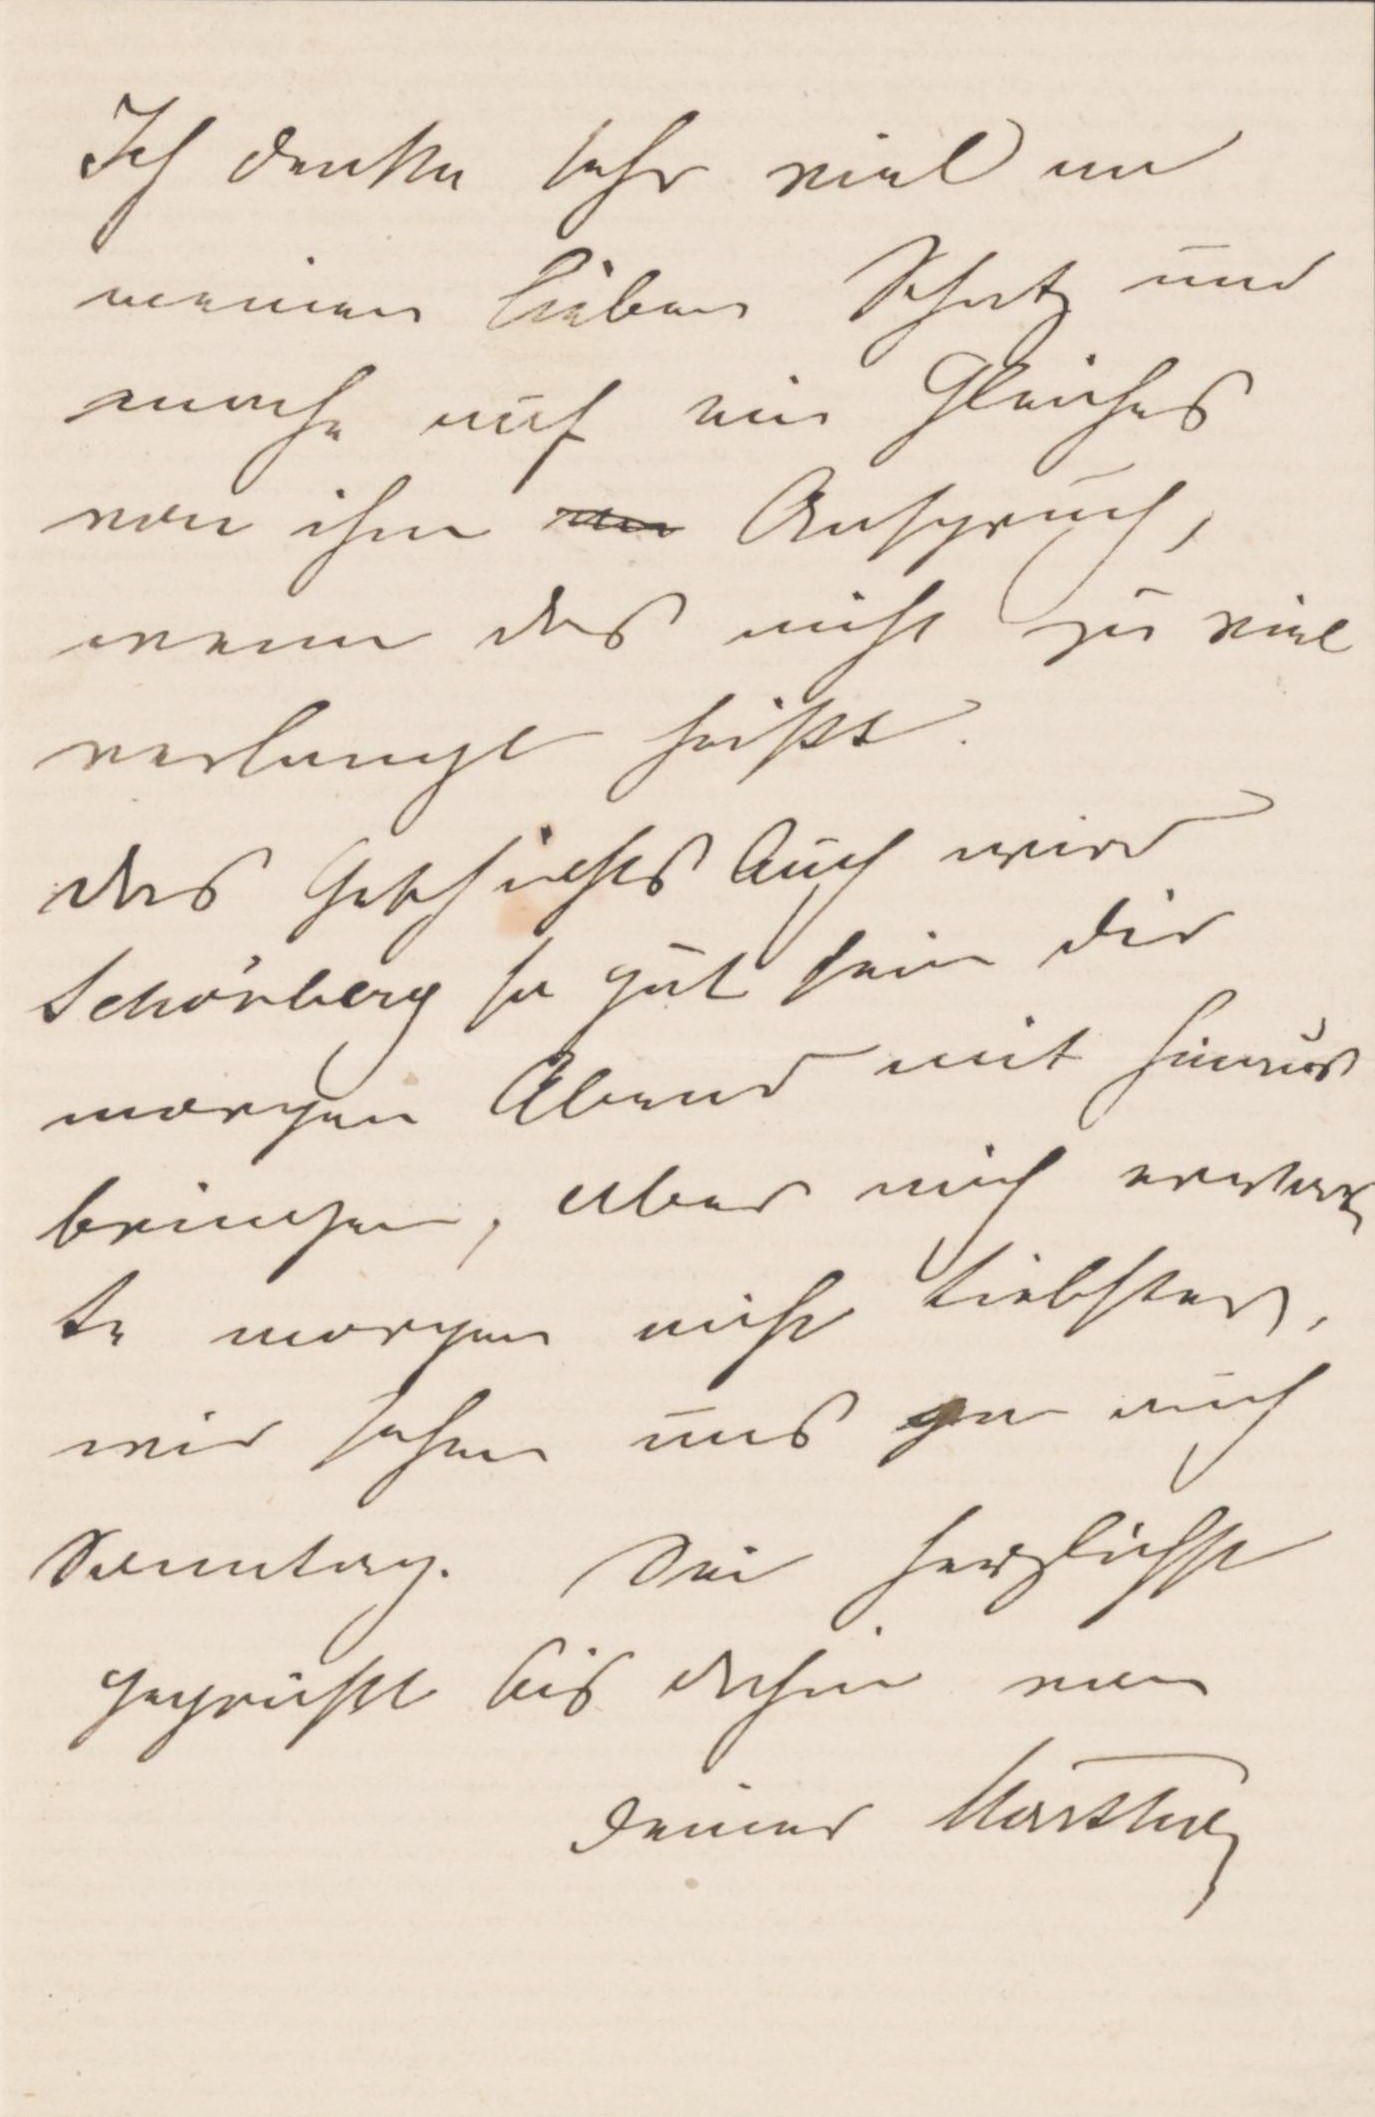 Ich denke sehr viel an
meinen lieben Schatz und
mache auf ein Gleiches
von ihm Anspruch,
wenn das nicht zu viel
verlangt heißt.
das Gesichts Buch wird
Schönberg so gut sein dir
morgen Abend mit hinaus
bringen, aber mich erwar
te morgen nicht Liebster,
wir sehen uns ja auch
Sonntag. Sei herzlichst
gegrüßt bis dahin von
deiner Martha